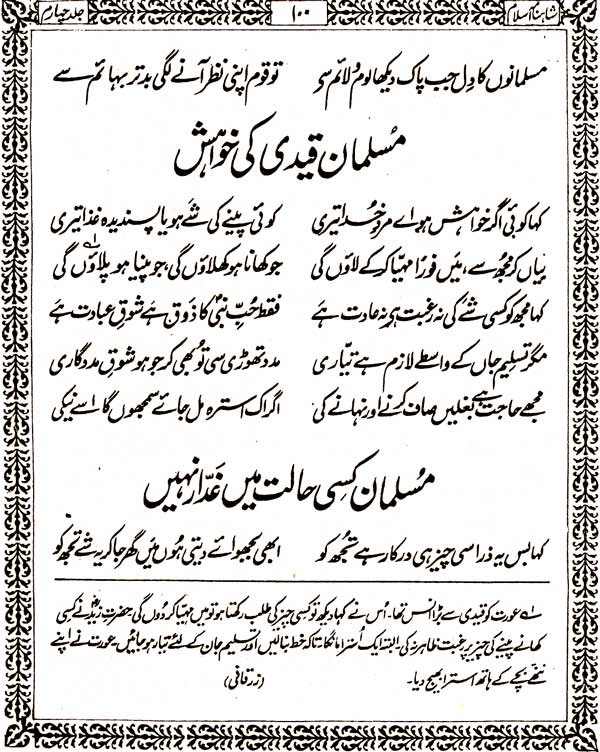 شاہنامۂ اسلام ۱۰۰ جلد چہارم
مسلمانوں کا دِل جب پاک دیکھا لوم و لائم سے تو قوم اپنی نظر آنے لگی بدتر بہائم سے
مُسلمان قیدی کی خواہش
کہا کوئی اگر خواہش ہو اے مردِ خُدا تیری کوئی پینے کی شَے ہو یا پسندیدہ غذا تیری
بیاں کر مجھ سے، میں فوراً مہیّا کر کے لاؤں گی جو کھانا ہو کھلاؤں گی، جو پینا ہو پلاؤں گی ۱؎
کہا مجھ کو کسی شے کی نہ رغبت ہے نہ عادت ہے فقط حُبِّ نبیؐ کا ذوق ہے شوقِ عبادت ہے
مگر تسلیمِ جاں کے واسطے لازم ہے تیّاری مدد تھوڑی سی تُو بھی کر جو ہو شوقِ مددگاری
مجھے حاجت ہے بغلیں صاف کرنے اور نہانے کی اگر اک استرہ مل جائے سمجھوں گا اسے نیکی
مُسلمان کِسی حالت میں غدّار نہیں
کہا بس یہ ذرا سی چیز ہی درکار ہے تُجھ کو ابھی بھجوائے دیتی ہُوں میں گھر جا کر یہ شے تجھ کو
۱؎ عورت کو قیدی سے بڑا انس تھا۔ اُس نے کہا دیکھ تو کسی چیز کی طلب رکھتا ہو تو میں مہیّا کر دُوں گی حضرت زیدؓ نے کسی
کھانے پینے کی چیز پر رغبت ظاہر نہ کی البتہ ایک اُسترا مانگا تاکہ خط بنا لیں اور تسلیم جان کے لئے تیار ہو جائیں۔ عورت نے اپنے
ننھے بچّے کے ہاتھ استرا بھیج دیا۔ (زرقانی)